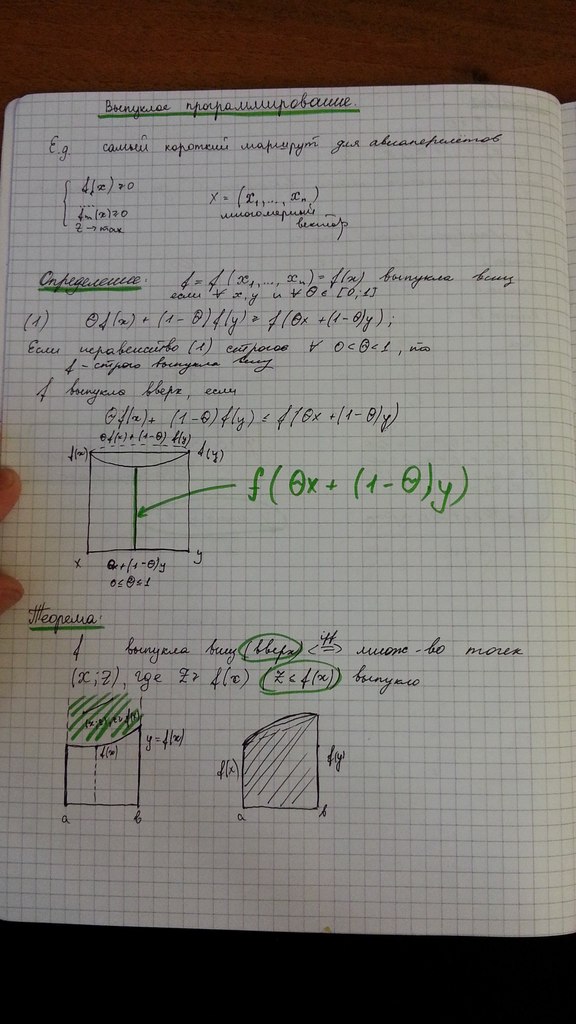 Выпуклое программирование.
E.g. самый короткий маршрут для авиаперелётов
f₁(x) ≥ 0
....
fₘ(x) ≥ 0
z → max
X = (x₁, ..., xₙ)
многомерный
вектор
Определение: f = f(x₁, ..., xₙ) = f(x) выпукла вниз
если ∀ x, y и ∀ Θ ∈ [0, 1]
(1) Θf(x) + (1-Θ)f(y) ≥ f(Θx + (1-Θ)y);
Если неравенство (1) строгое ∀ 0<Θ<1, то
f - строго выпукла вниз
f выпукла вверх, если
Θf(x) + (1-Θ)f(y) ≤ f(Θx + (1-Θ)y)
Θf(x) + (1-Θ) f(y)
f(x) f(y)
f(Θx + (1-Θ)y)
x Θx + (1-Θ)y y
0≤Θ≤1
Теорема:
f выпукла вниз (вверх) <=> множ-во точек
(x; z), где z ≥ f(x) (z ≤ f(x)) выпукло
y = f(x)
f(x)
a b
f(x) f(y)
a b